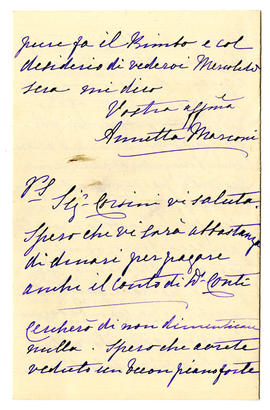 pure fa il Bimbo e col
desiderio di vedervi Mercoledì
sera mi dico
Vostra affma
Annetta Marconi
PS Sigr Corsini vi saluta.
Spero che vi sarà abbastanza
di denari per pagare
anche il conto di Dr Conti
Cercherò di non dimenticare
nulla. Spero che avrete
veduto un buon pianoforte